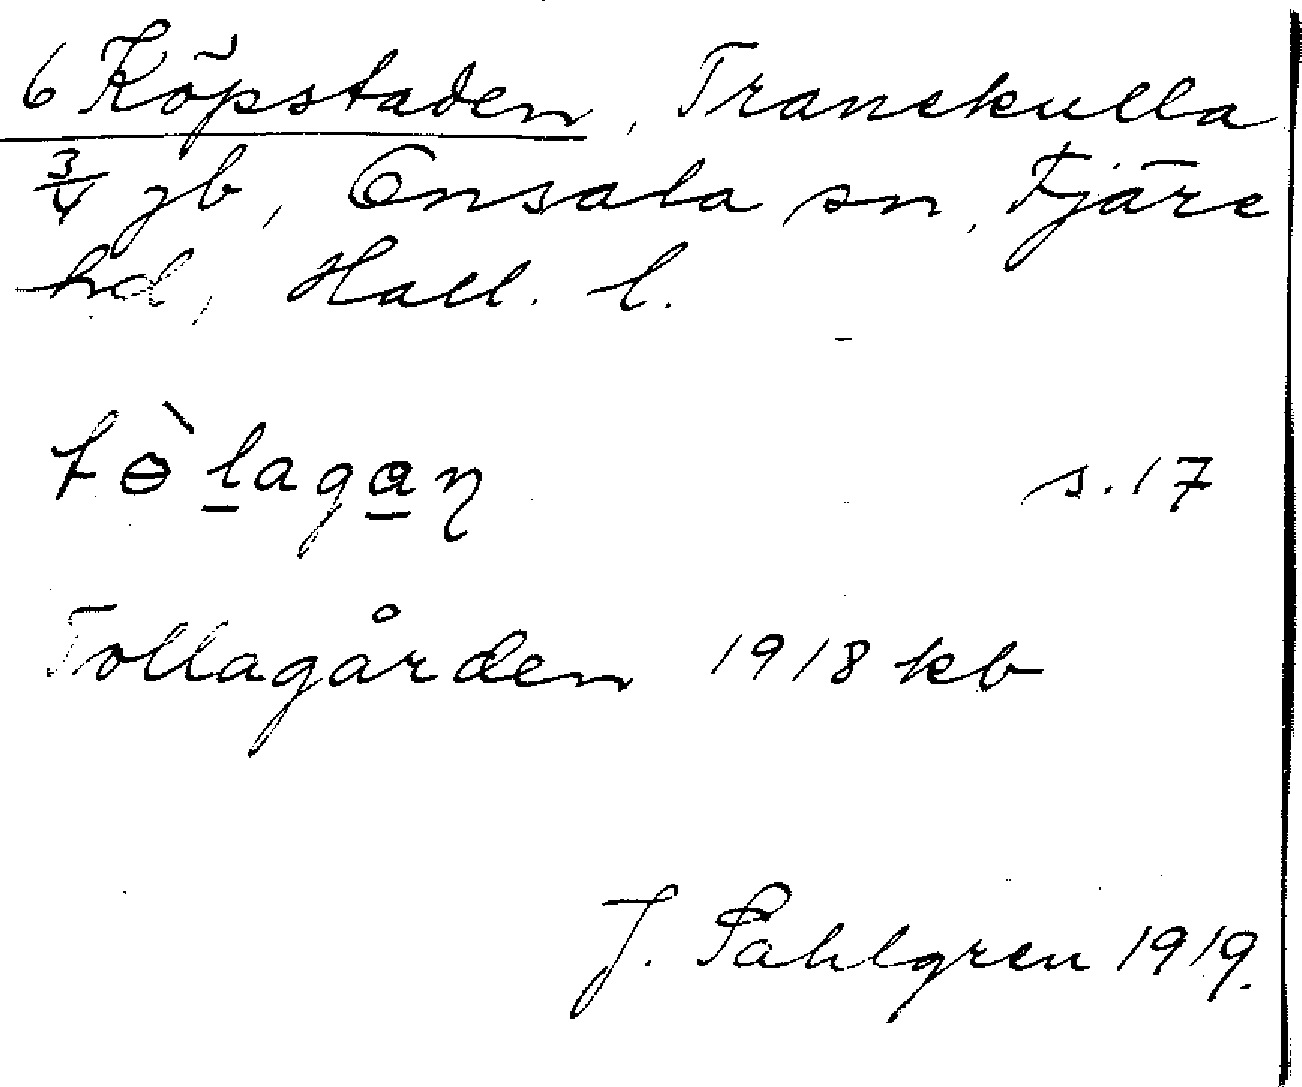 6 Köpstaden, Tranekulla
3/4 jb, Onsala sn, Fjäre
hd, Hall. l.
tɵ̀lagaɳ s. 17
Tollagården 1918 kb
J. Sahlgren 1919.